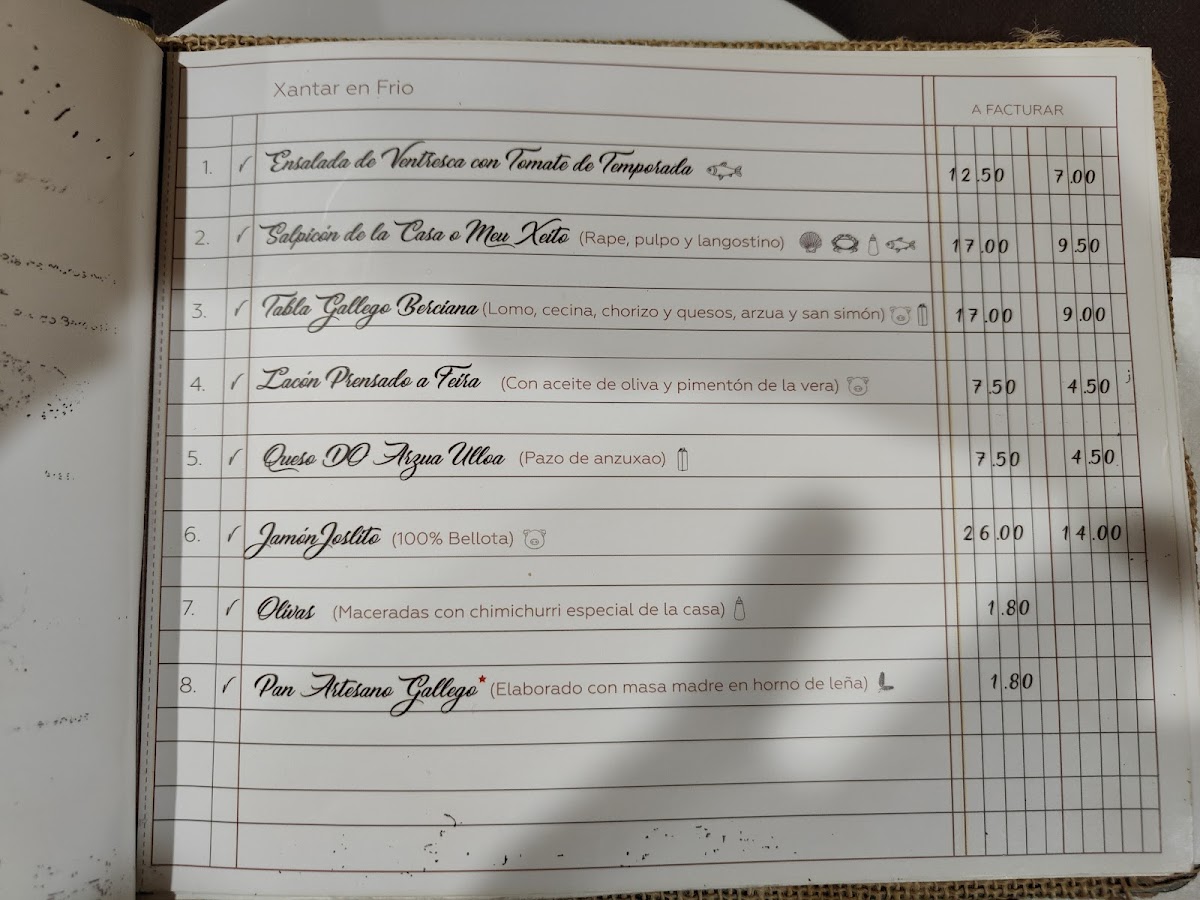 Xantar en Frio
A FACTURAR
1. ✓ Ensalada de Ventresca con Tomate de Temporada 12.50 7.00
2. ✓ Salpicón de la Casa o Meu Xeito (Rape, pulpo y langostino) 17.00 9.50
3. ✓ Tabla Gallego Berciana (Lomo, cecina, chorizo y quesos, arzua y san simón) 17.00 9.00
4. ✓ Lacón Prensado a Feira (Con aceite de oliva y pimentón de la vera) 7.50 4.50
5. ✓ Queso DO Arzua Ulloa (Pazo de anzuxao) 7.50 4.50
6. ✓ Jamón Joslito (100% Bellota) 26.00 14.00
7. ✓ Olivas (Maceradas con chimichurri especial de la casa) 1.80
8. ✓ Pan Artesano Gallego* (Elaborado con masa madre en horno de leña) 1.80